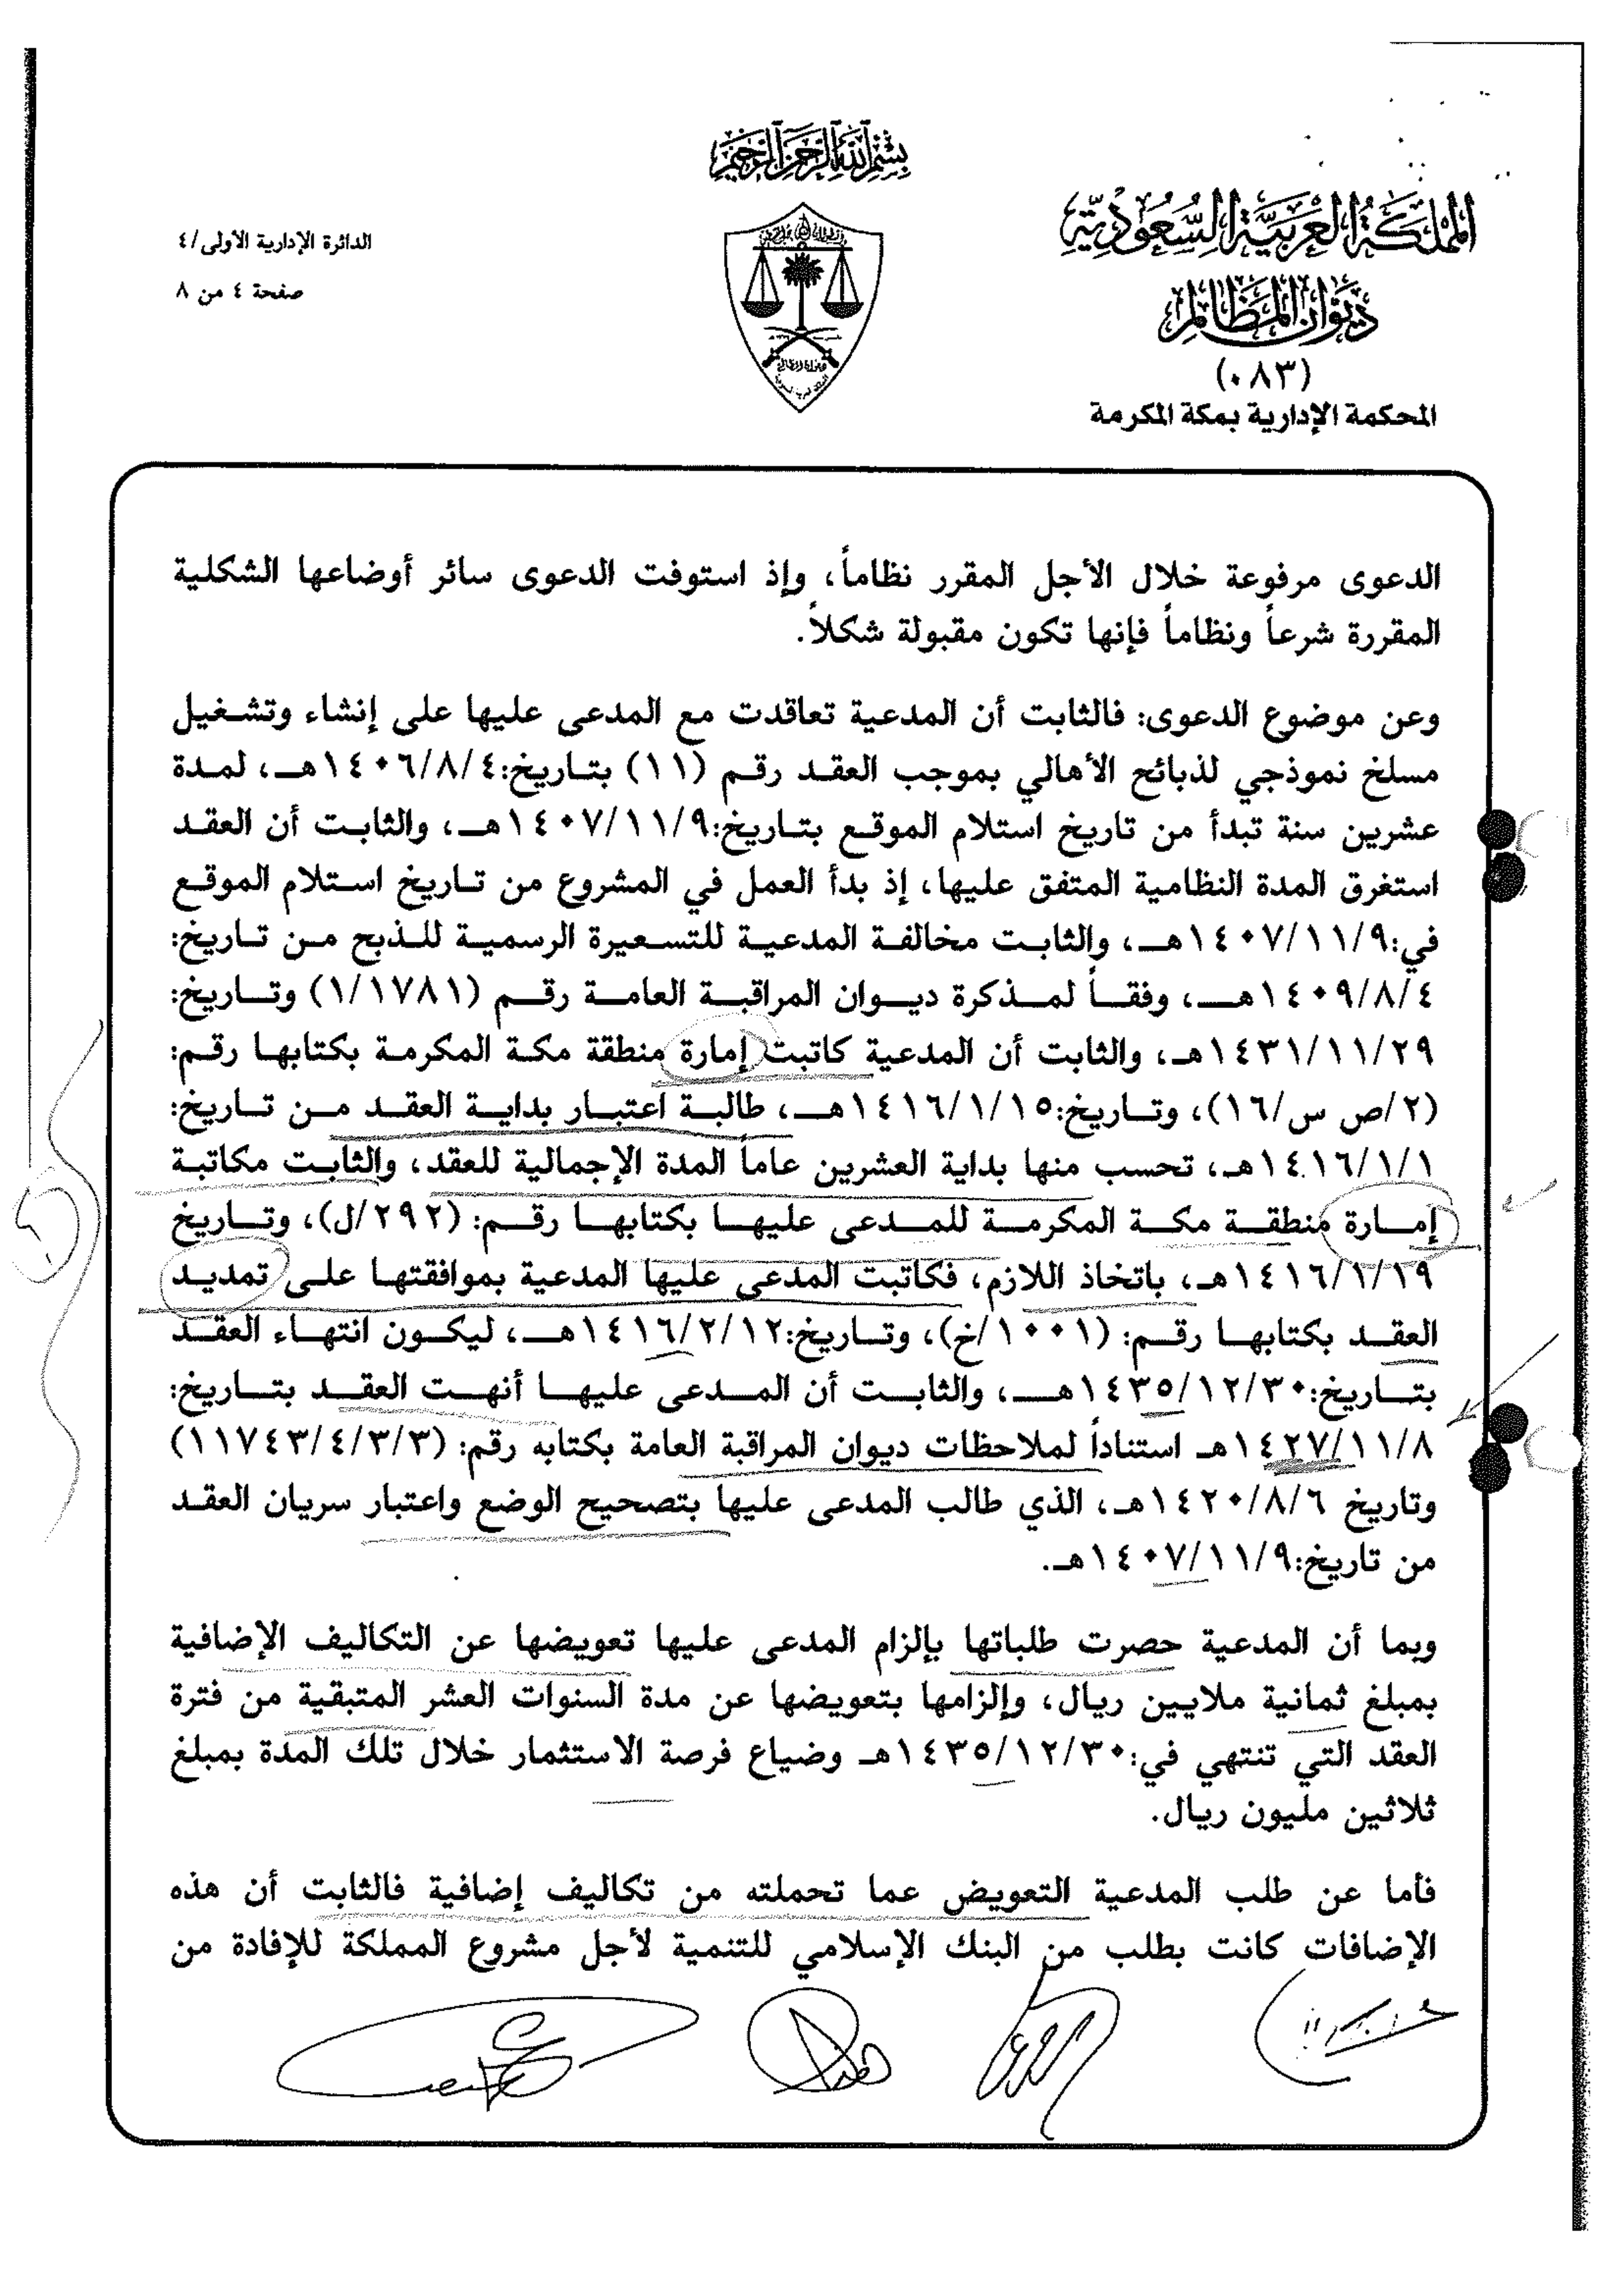 بسم الله الرحمن الرحيم
المملكة العربية السعودية
ديوان المظالم
(٠٨٣)
المحكمة الإدارية بمكة المكرمة
الدائرة الإدارية الأولى/٤
صفحة ٤ من ٨
الدعوى مرفوعة خلال الأجل المقرر نظاماً، وإذ استوفت الدعوى سائر أوضاعها الشكلية
المقررة شرعاً ونظاماً فإنها تكون مقبولة شكلاً.
وعن موضوع الدعوى: فالثابت أن المدعية تعاقدت مع المدعى عليها على إنشاء وتشغيل
مسلخ نموذجي لذبائح الأهالي بموجب العقد رقم (١١) بتاريخ:١٤٠٦/٨/٤هـ، لمدة
عشرين سنة تبدأ من تاريخ استلام الموقع بتاريخ:١٤٠٧/١١/٩هـ، والثابت أن العقد
استغرق المدة النظامية المتفق عليها، إذ بدأ العمل في المشروع من تاريخ استلام الموقع
في:١٤٠٧/١١/٩هـ، والثابت مخالفة المدعية للتسعيرة الرسمية للذبح من تاريخ:
١٤٠٩/٨/٤هـ، وفقاً لمذكرة ديوان المراقبة العامة رقم (١/١٧٨١) وتاريخ:
١٤٣١/١١/٢٩هـ، والثابت أن المدعية كاتبت إمارة منطقة مكة المكرمة بكتابها رقم:
(٢/ص س/١٦)، وتاريخ:١٤١٦/١/١٥هـ، طالبة اعتبار بداية العقد من تاريخ:
١٤١٦/١/١هـ، تحسب منها بداية العشرين عاماً المدة الإجمالية للعقد، والثابت مكاتبة
إمارة منطقة مكة المكرمة للمدعى عليها بكتابها رقم: (٢٩٢/ل)، وتاريخ
١٤١٦/١/١٩هـ، باتخاذ اللازم، فكاتبت المدعى عليها المدعية بموافقتها على تمديد
العقد بكتابها رقم: (١٠٠١/خ)، وتاريخ:١٤١٦/٢/١٢هـ، ليكون انتهاء العقد
بتاريخ:١٤٣٥/١٢/٣٠هـ، والثابت أن المدعى عليها أنهت العقد بتاريخ:
١٤٢٧/١١/٨هـ استناداً لملاحظات ديوان المراقبة العامة بكتابه رقم: (١١٧٤٣/٤/٣/٣)
وتاريخ ١٤٢٠/٨/٦هـ، الذي طالب المدعى عليها بتصحيح الوضع واعتبار سريان العقد
من تاريخ:١٤٠٧/١١/٩هـ.
وبما أن المدعية حصرت طلباتها بإلزام المدعى عليها تعويضها عن التكاليف الإضافية
بمبلغ ثمانية ملايين ريال، وإلزامها بتعويضها عن مدة السنوات العشر المتبقية من فترة
العقد التي تنتهي في:١٤٣٥/١٢/٣٠هـ وضياع فرصة الاستثمار خلال تلك المدة بمبلغ
ثلاثين مليون ريال.
فأما عن طلب المدعية التعويض عما تحملته من تكاليف إضافية فالثابت أن هذه
الإضافات كانت بطلب من البنك الإسلامي للتنمية لأجل مشروع المملكة للإفادة من